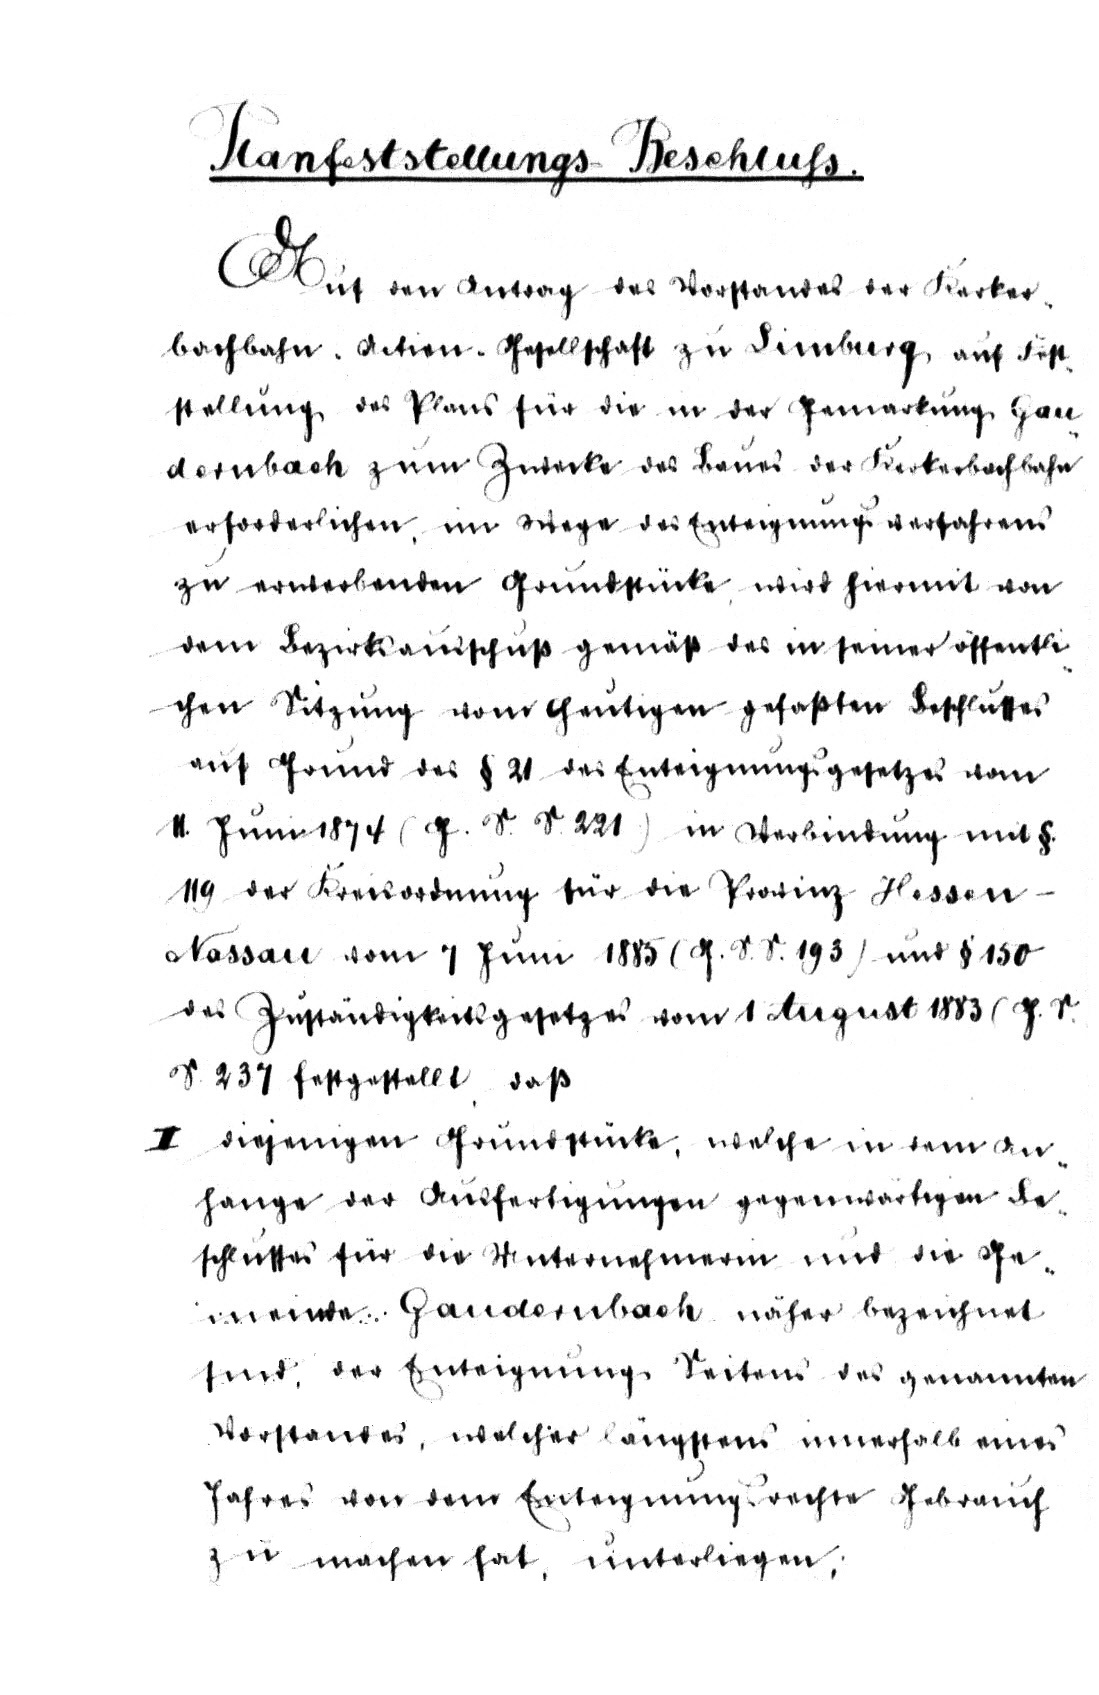 Planfeststellungs-Beschluss.
Auf den Antrag des Vorstandes der Kerker-
bachbahn-Actien-Gesellschaft zu Limburg, auf Fest-
stellung des Plans für die in der Gemarkung Gau-
dernbach zum Zwecke des Baues der Kerkerbachbahn
erforderlichen, im Wege des Enteignungsverfahrens
zu erwerbenden Grundstücke, wird hiermit von
dem Bezirksausschuß gemäß des in seiner öffentli-
chen Sitzung vom heutigen gefaßten Beschlusses
auf Grund des § 21 des Enteignungsgesetzes vom
11. Juni 1874 (G. S. S. 221) in Verbindung mit §.
119 der Kreisordnung für die Provinz Hessen-
Nassau vom 7 Juni 1885 (G. S. S. 193) und § 150
des Zuständigkeitsgesetzes vom 1 August 1883 (G. S.
S. 237 festgestellt, daß
I diejenigen Grundstücke, welche in dem An-
hange der Ausfertigungen gegenwärtigen Be-
schlusses für die Unternehmerin und die Ge-
meinde Gaudernbach näher bezeichnet
sind, der Enteignung Seitens des genannten
Vorstandes, welcher längstens innerhalb eines
Jahres von dem Enteignungsrechte Gebrauch
zu machen hat, unterliegen;